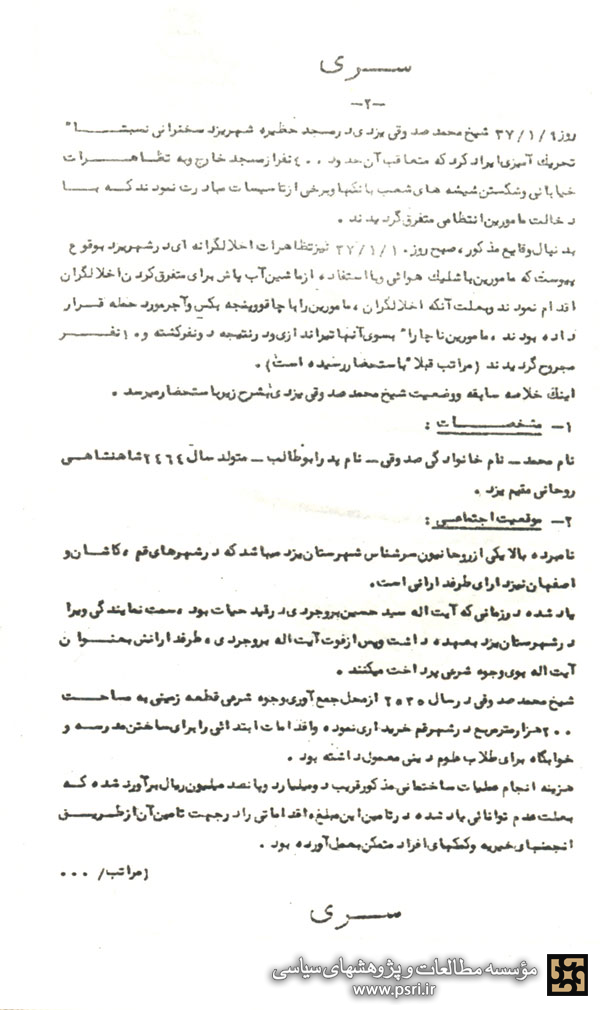 سری
-۲-
روز ۳۷/۱/۹ شیخ محمد صدوقی یزدی در مسجد حظیره شهر یزد سخنرانی نسبتا"
تحریک آمیزی ایراد کرد که متعاقب آن حدود ۴۰۰ نفر از مسجد خارج و به تظاهرات
خیابانی و شکستن شیشه های شعب بانکها و برخی از تاسیسات مبادرت نمودند که با
دخالت مامورین انتظامی متفرق گردیدند .
بدنبال وقایع مذکور، صبح روز ۳۷/۱/۱۰ نیز تظاهرات اخلالگرانه ای در شهر یزد بوقوع
پیوست که مامورین با شلیک هوائی و با استفاده از ماشین آب پاش برای متفرق کردن اخلالگران
اقدام نمودند و بعلت آنکه اخلالگران ، مامورین را با چاقو و پنجه بکس و آجر مورد حمله قرار
داده بودند ، مامورین ناچارا" بسوی آنها تیراندازی و در نتیجه دو نفر کشته و ۱۰ نفر
مجروح گردیدند (مراتب قبلا" باستحضار رسیده است) .
اینک خلاصه سابقه و وضعیت شیخ محمد صدوقی یزدی بشرح زیر باستحضار میرسد .
۱- مشخصات :
نام محمد - نام خانوادگی صدوقی - نام پدر ابوطالب - متولد سال ۲۴۶۴ شاهنشاهی
روحانی مقیم یزد .
۲- موقعیت اجتماعی :
نامبرده بالا یکی از روحانیون سرشناس شهرستان یزد میباشد که در شهرهای قم ، کاشان و
اصفهان نیز دارای طرفدارانی است.
یاد شده در زمانی که آیت اله سید حسین بروجردی در قید حیات بود ، سمت نمایندگی ویرا
در شهرستان یزد بعهده داشت و پس از فوت آیت اله بروجردی ، طرفدارانش بعنوان
آیت اله بوی وجوه شرعی پرداخت میکنند .
شیخ محمد صدوقی در سال ۲۵۳۵ از محل جمع آوری وجوه شرعی قطعه زمینی به مساحت
۲۰۰ هزار مترمربع در شهر قم خریداری نموده و اقدامات ابتدائی را برای ساختن مدرسه و
خوابگاه برای طلاب علوم دینی معمول داشته بود .
هزینه انجام عملیات ساختمانی مذکور قریب دو میلیارد و پانصد میلیون ریال برآورد شده که
بعلت عدم توانائی یاد شده در تامین این مبلغ ، اقداماتی را در جهت تامین آن از طریق
انجمنهای خیریه و کمکهای افراد متمکن بعمل آورده بود .
/مراتب ...
سری
مؤسسه مطالعات و پژوهشهای سیاسی
www.psri.ir